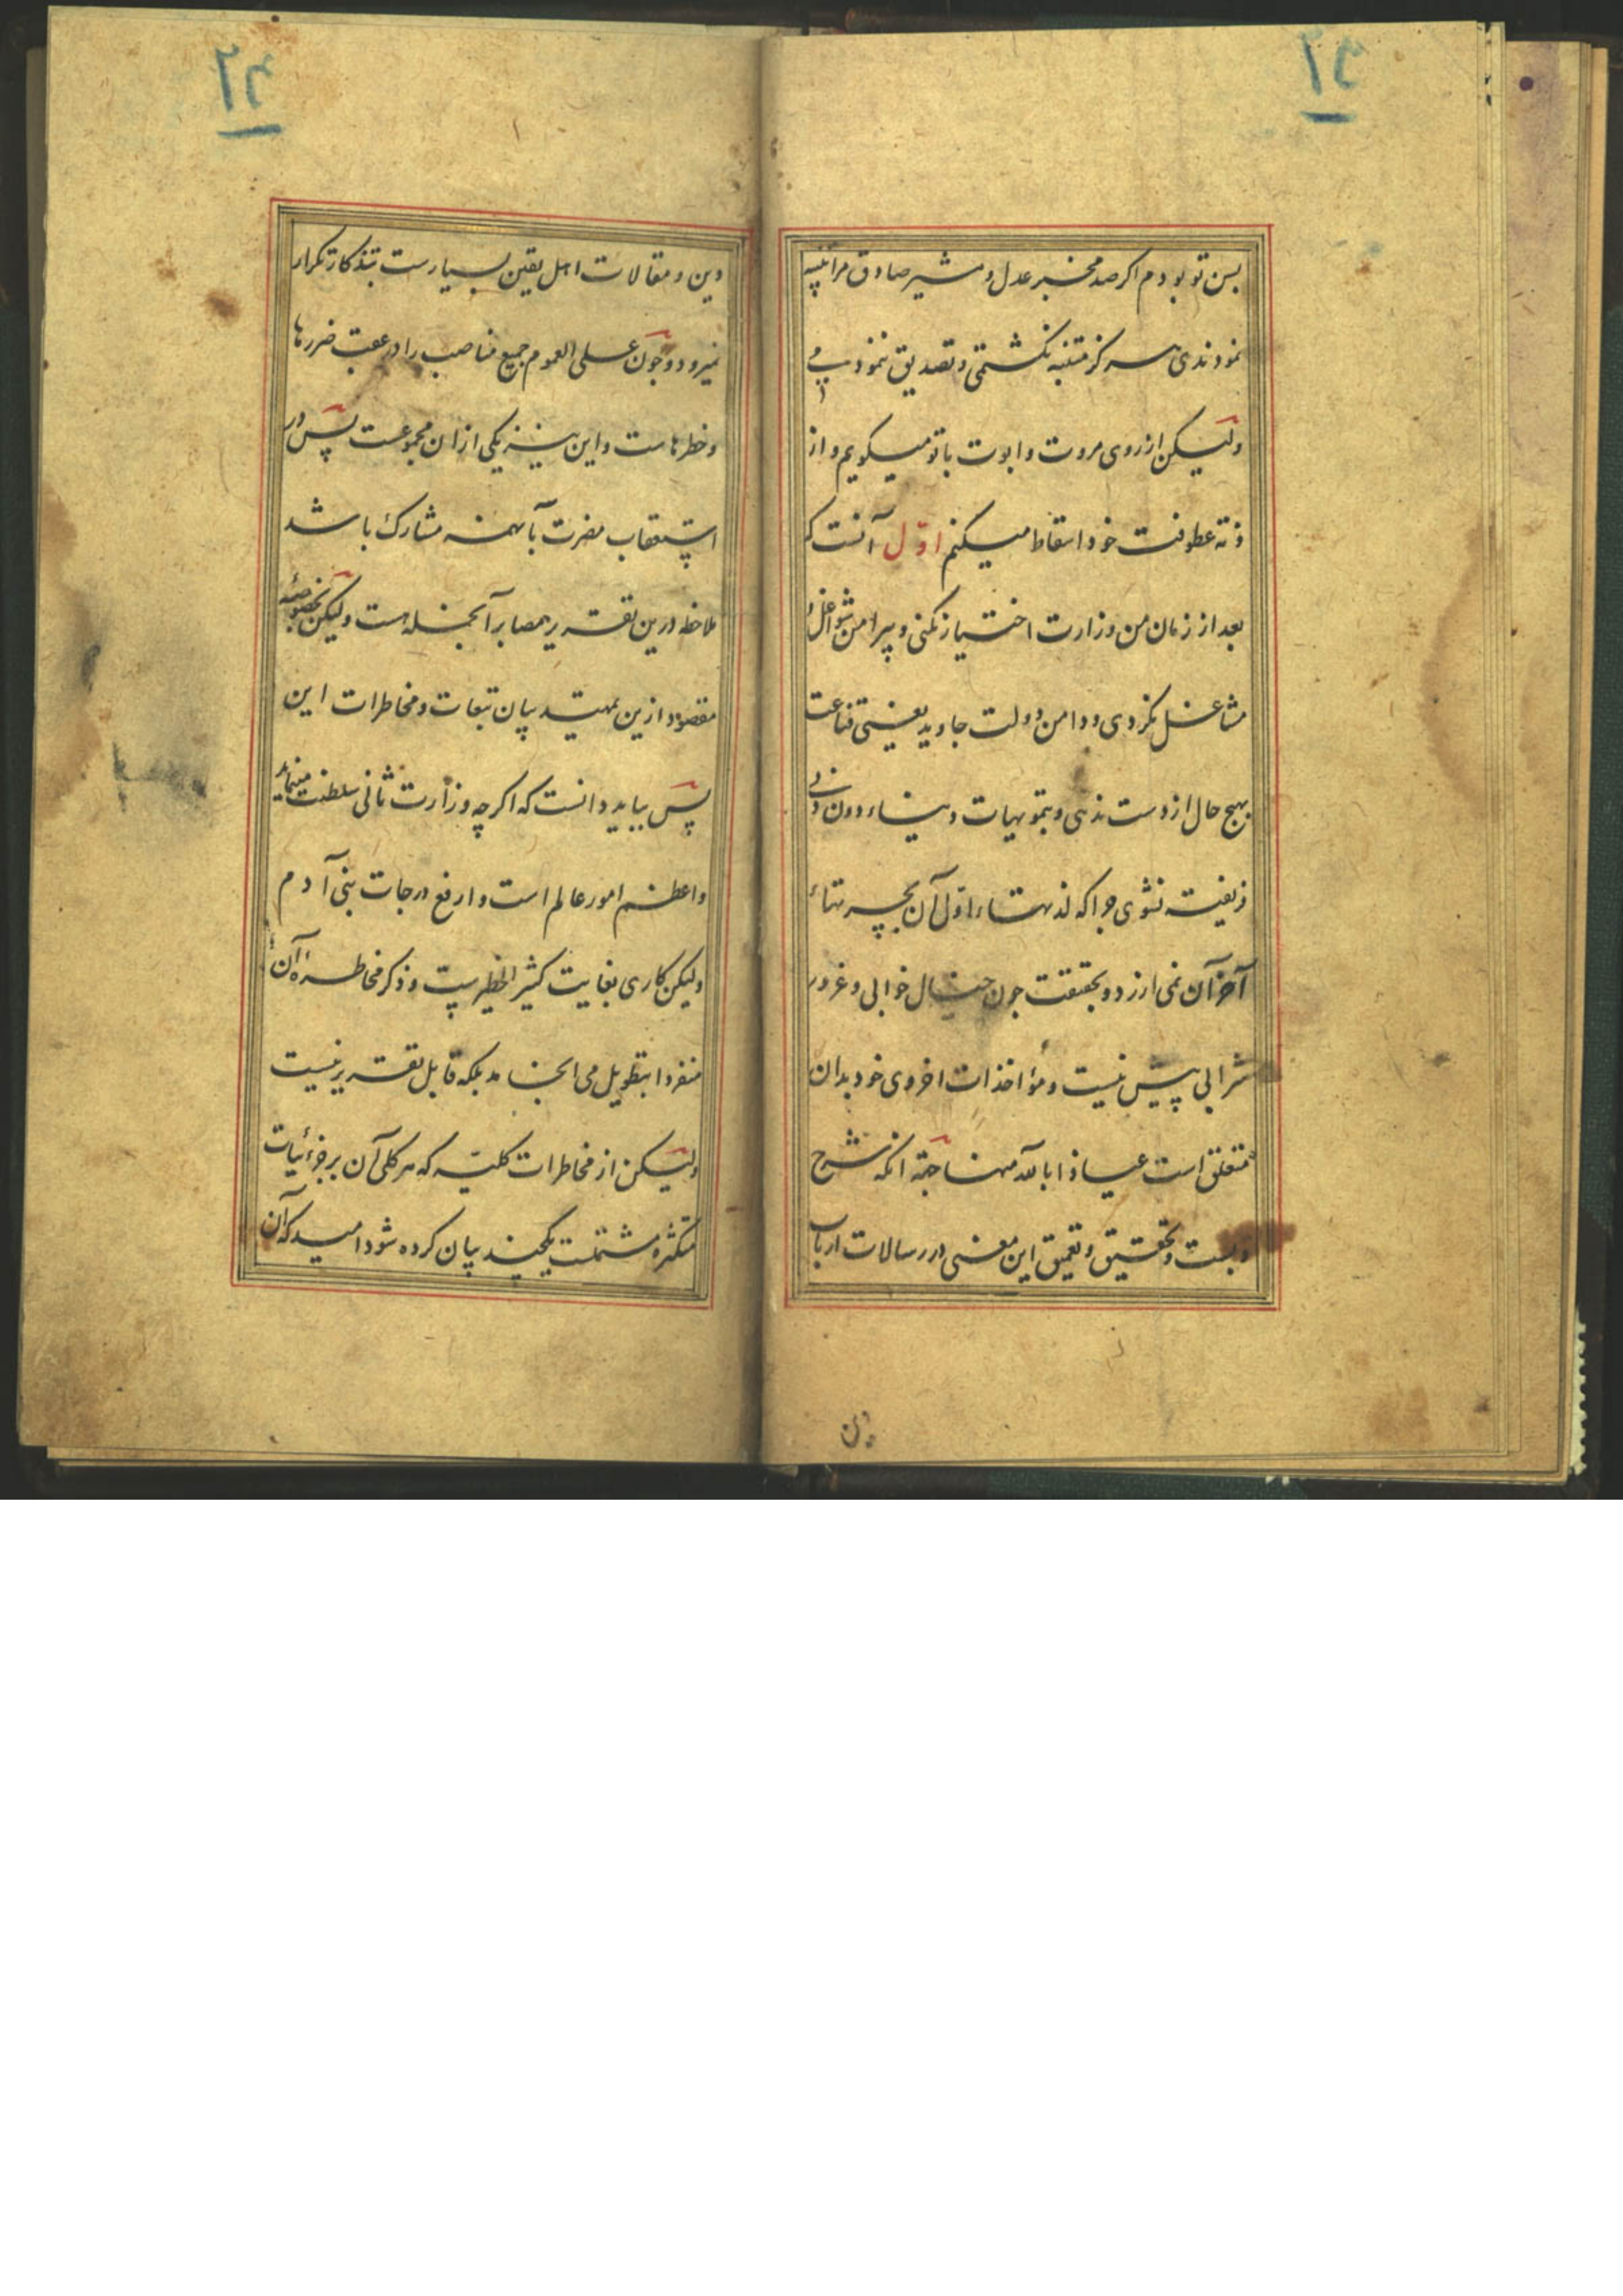 بسن تو بودم اکر صد مخبر عدل و مشیر صادق مرا تنبیه
نمودندی هرکز متنبه نکشتمی و تصدیق ننمودمی
ولیکن از روی مروت و ابوت با تو میکویم و از
ذمّه عطوفت خود اسقاط میکنم اوّل آنست که
بعد از زمان من وزارت اختیار نکنی و پیرامن شواغل
مشاغل نکردی و دامن دولت جاوید یعنی قناعت
بهیچ حال از دست ندهی و بتمویهات دنیاء دون
فریفته نشوی جرا که لذتهاء اوّل آن بحسرتهاء
آخر آن نمی ارزد و بحقیقت جون خیال خوابی و غرور
شرابی بیش نیست و مؤاخذات اخروی خود بدان
متعلق است عیاذا بالله منها جه آنکه شرح
و بسط و تحقیق و تعمیق این معنی در رسالات ارباب
دین
دین و مقالات اهل یقین بسیارست بتذکار تکرار
نمیرود و جون علی العموم جمیع مناصب را در عقب ضررها
و خطرهاست و این نیز یکی از ان مجموعست پس در
استعقاب مضرت با همه مشارک باشد
ملاحظه درین تقریر بمصابر آنجمله هست ولیکن
مقصود ازین تمهید بیان تبعات و مخاطرات این
پس بباید دانست که اکر چه وزارت ثانی سلطنت
و اعظم امور عالم است و ارفع درجات بنی آدم
ولیکن کاری بغایت کثیر الخطرست و ذکر مخاطره آن
منفردا بتطویل می انجامد بلکه قابل تقریر نیست
ولیکن از مخاطرات کلیّه که هر کلی آن بر جزئیات
متکثره مشتملست یکچند بیان کرده شود امید که آن